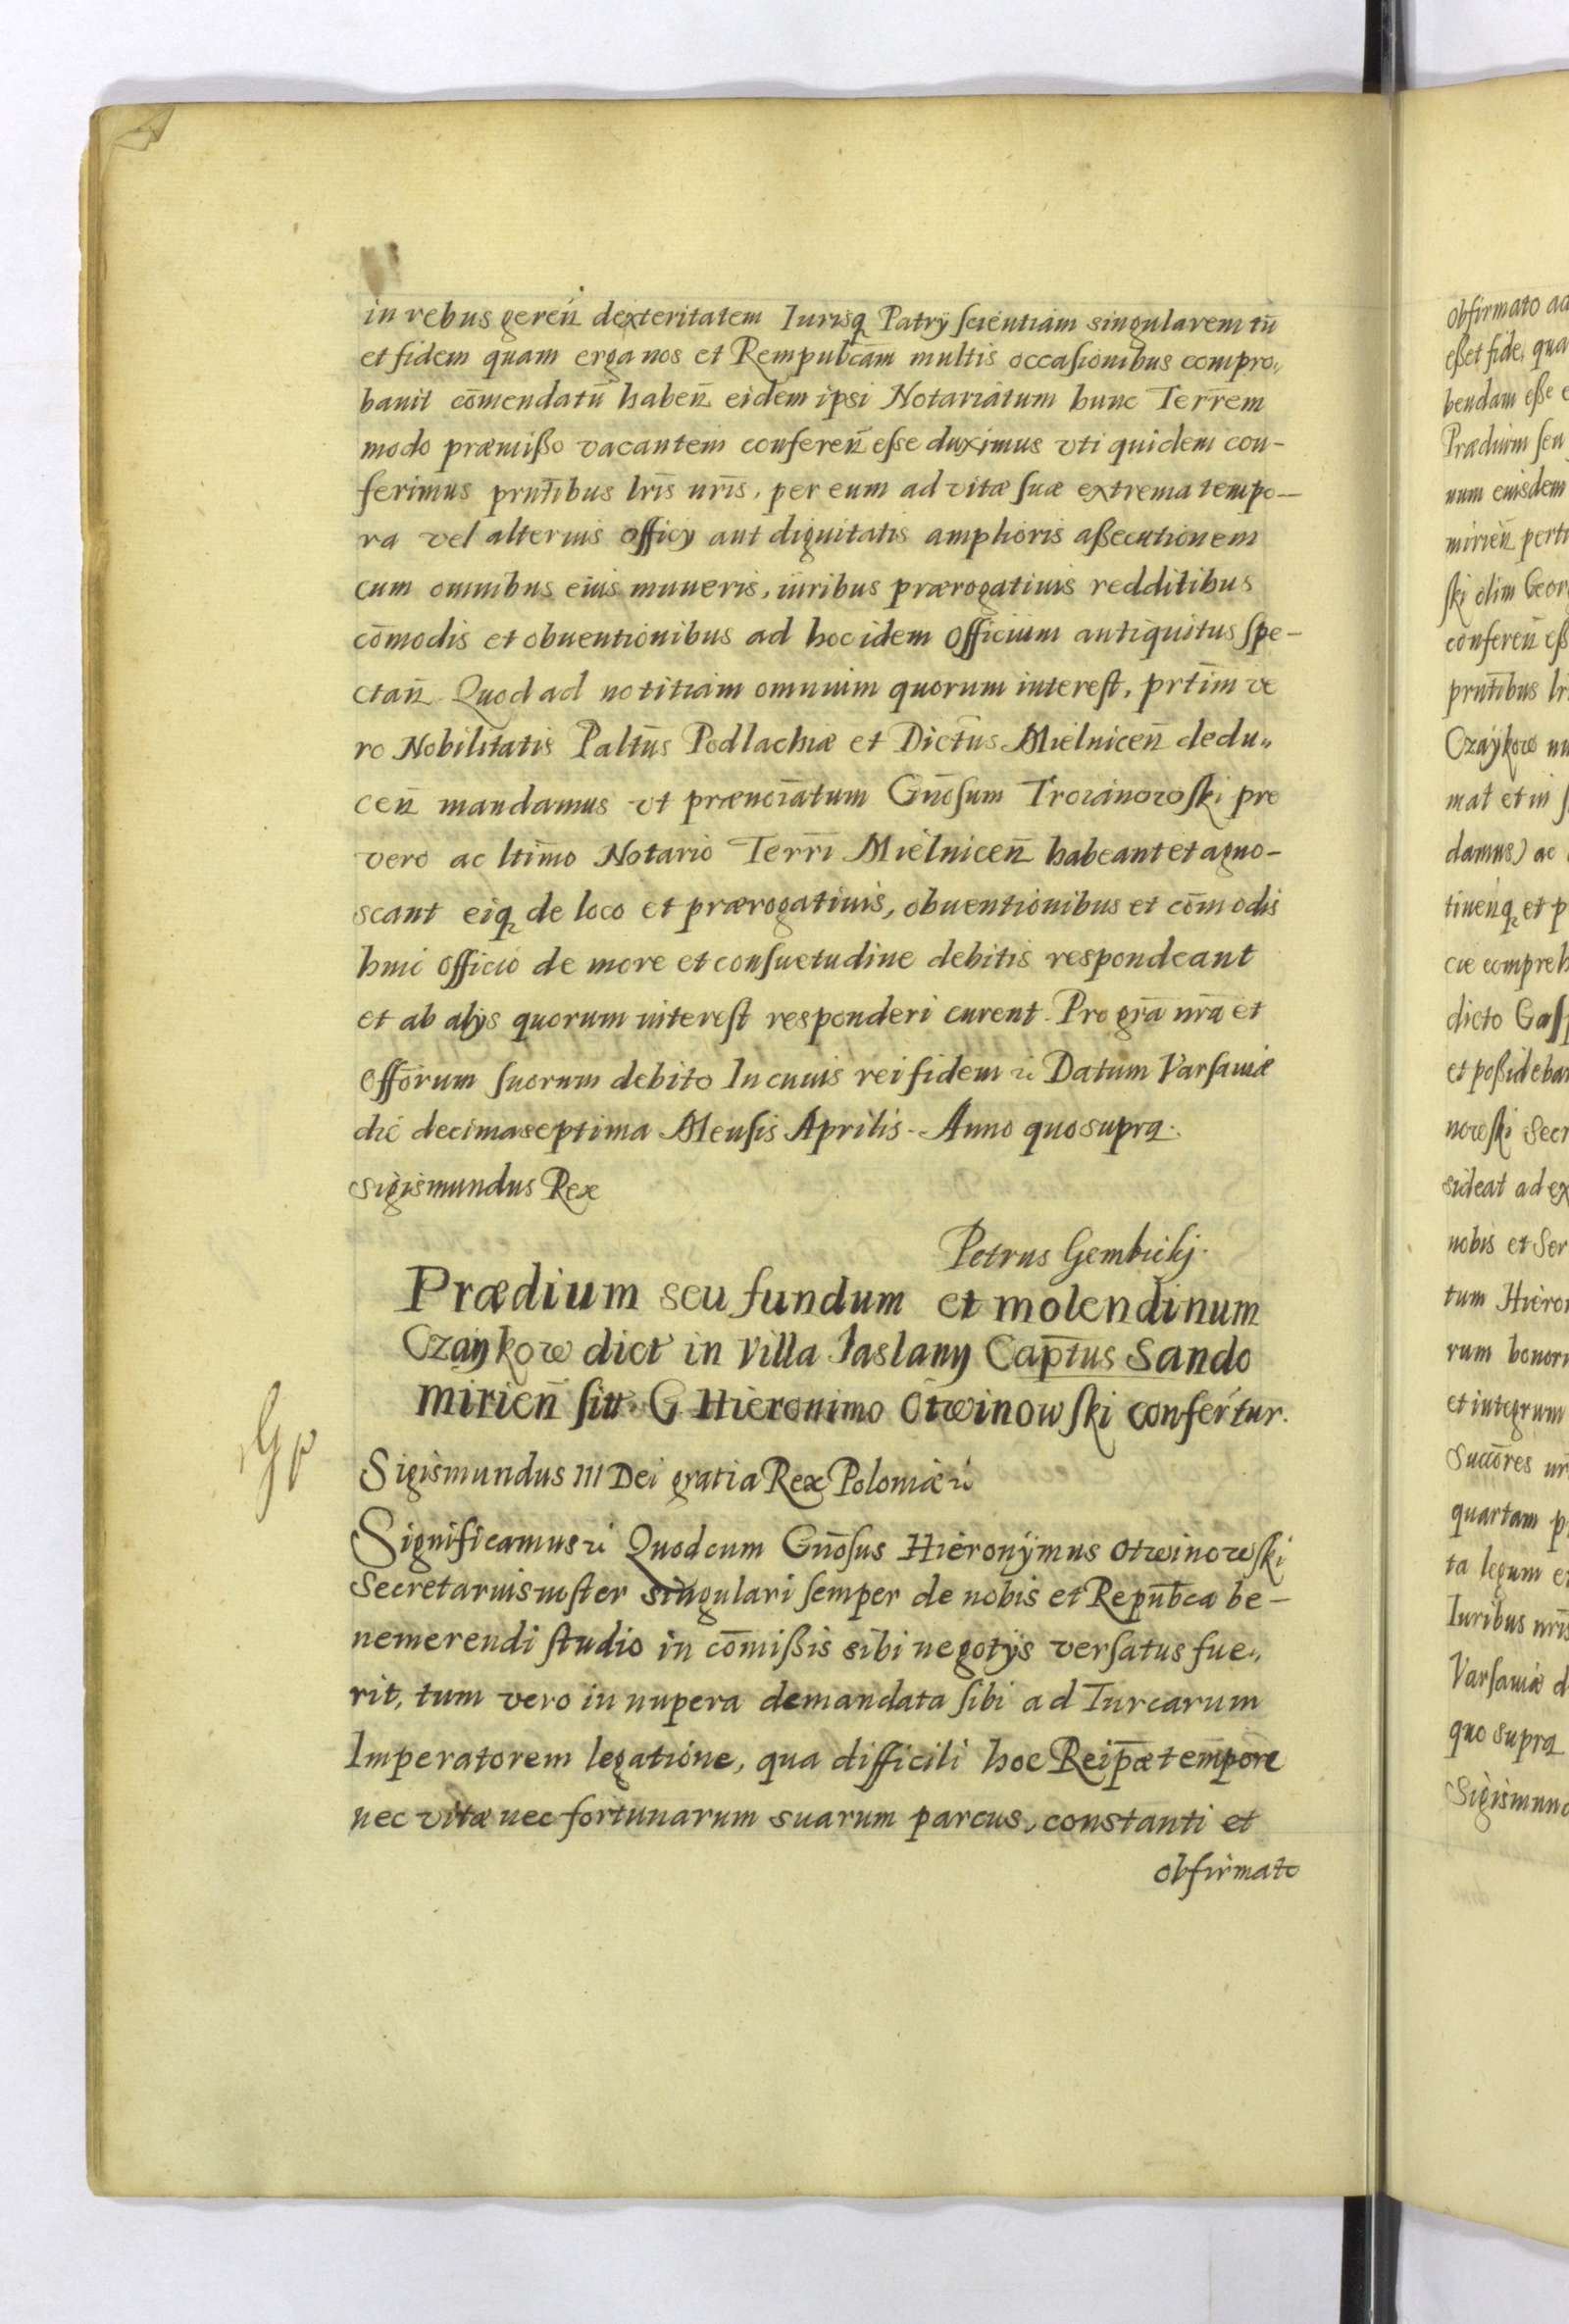 in rebus gereñ dexteritatem Iurisq Patrij scientiam singularem tū
et fidem quam erga nos et Rempulcam̄ multis occasionibus compro„
bauit cōmendatū habeñ eidem ipsi Notariatum hunc Terr̄em
modo præmißo vacantem confereñ esse duximus vti quidem con-
ferimus prntībus lrīs nrīs, per eum ad vitæ suæ extrema tempo-
ra vel alterius officij aut dignitatis amplioris aßecutionem
cum omnibus eius muneris, iuribus prærogatiuis redditibus
cōmodis et obuentionibus ad hoc idem officium antiquitus spe-
ctañ. Quod ad notitiam omnium quorum interest, prtīm ve
ro Nobilitatis Paltūs Podlachiæ et Dictūs Mielniceñ dedu„
ceñ mandamus vt prænoīatum Gnōsum Troianowski pro
vero ac ltīmo Notario Terrī Mielniceñ habeant et agno-
scant eiq de loco et prærogatiuis, obuentionibus et cōmodis
huic officio de more et consuetudine debitis respondeant
et ab alijs quorum interest responderi curent. Pro grā nrā et
offōrum suorum debito In cuius rei fidem &c Datum Varsauiæ
die decimaseptima Mensis Aprilis. Anno quo supra.
Sigismundus Rex
Petrus Gembickj.
Prædium seu fundum et molendinum
Czaÿkow dict in Villa Jaslany Captūs Sando
mirieñ sitt. G Hieronimo Otwinowski confertur.
Gp
Sigismundus III Dei gratia Rex Poloniæ &c
Significamus &c Quod cum Gnōsus Hieronÿmus Otwinowski
Secretarius noster singulari semper de nobis et Repub̄ca be-
nemerendi studio in cōmißis sibi negotÿs versatus fue„
rit, tum vero in nupera demandata sibi ad Turcarum
Imperatorem legatione, qua difficili hoc Reip̄æ tempore
nec vitæ nec fortunarum suarum parcus, constanti et
obfirmato
obfirmato
eßet fide, qua
bendam eße
Prædium seu
num eiusdem
mirieñ
ski olim
confereñ
prntībus
Czaÿkow
mat et in
damus) ac
tineñq et p
cie
dicto
et
sideat ad ex
nobis et Ser
tum
rum
et integrum
Succōres
quartam
ta legum
Iuribus nrīs
Varsauiæ
quo supra